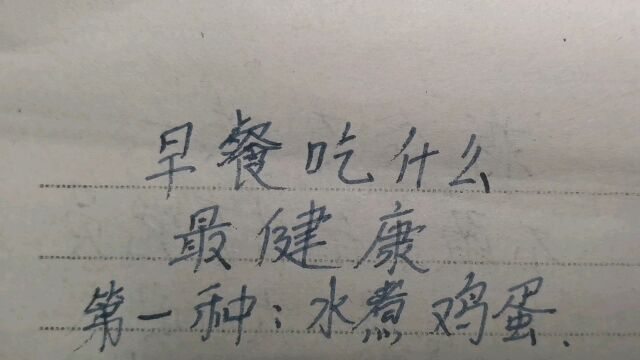 早餐吃什么
最健康
第一种：水煮鸡蛋.